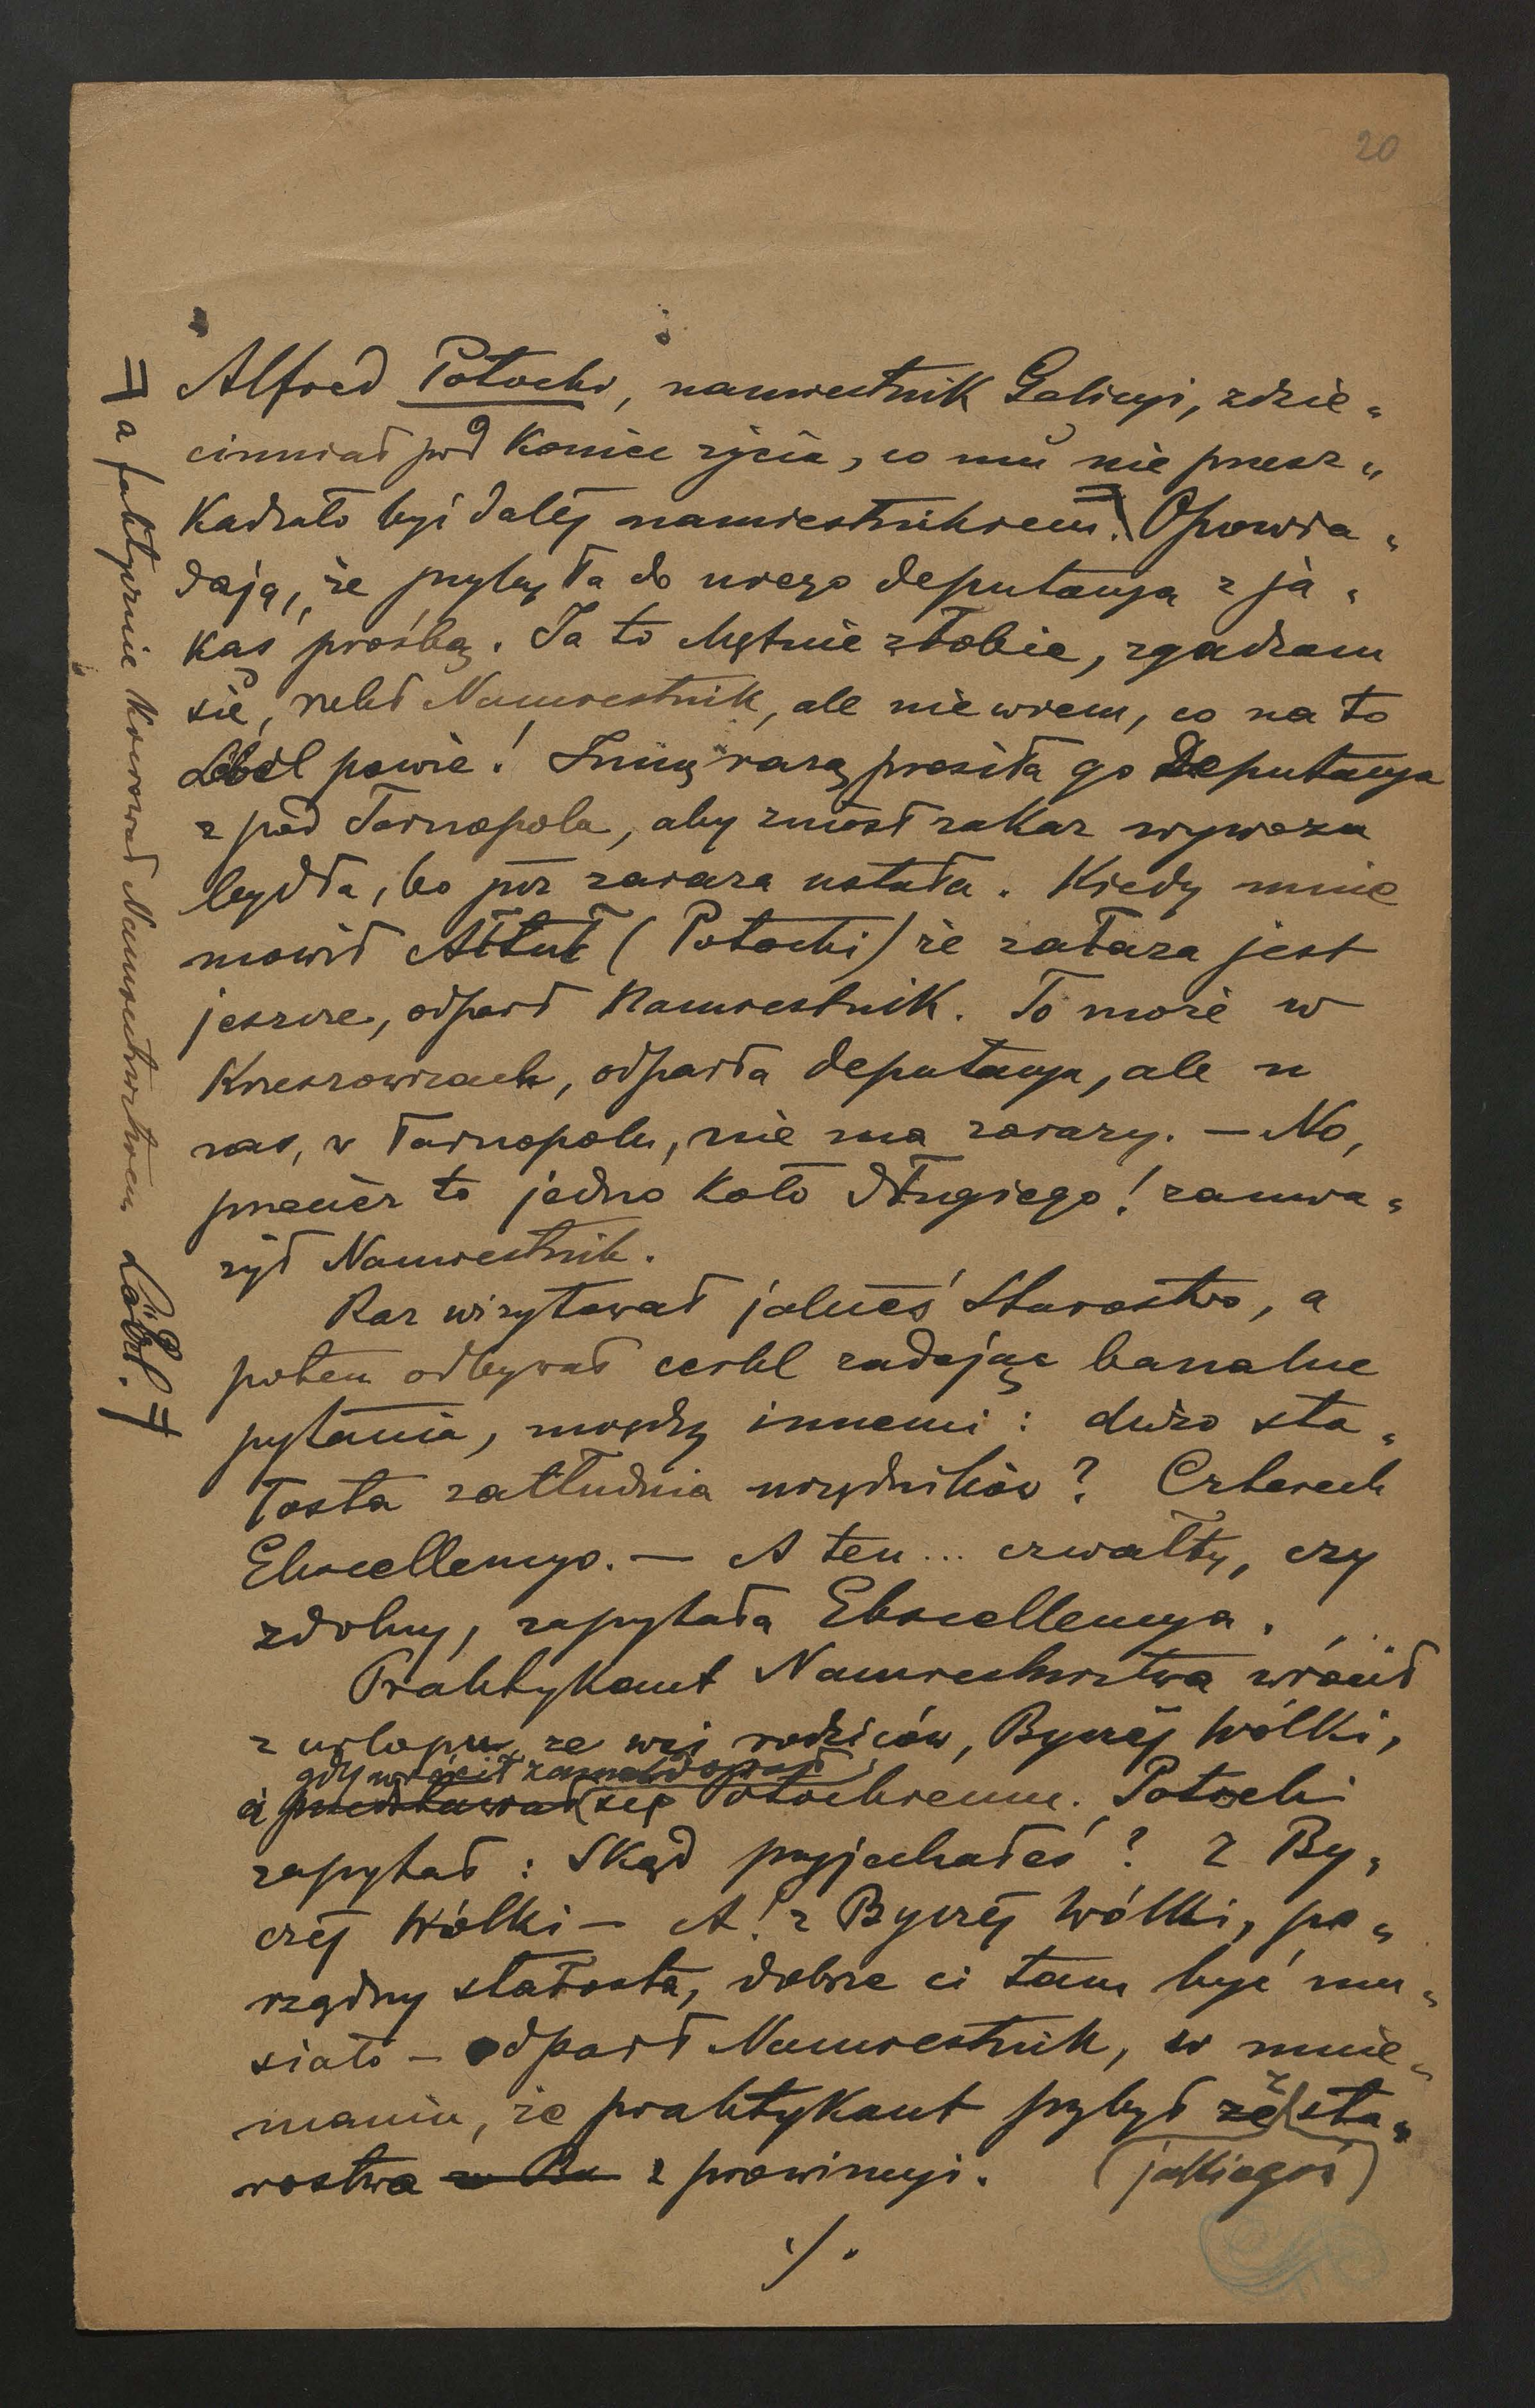 20
Alfred Potocki, namiestnik Galicyi, zdzie„
cinniał pod koniec życia, co mu nie przesz„
kadzało być dalej namiestnikiem. Opowia„
dają, że przybyła do niego deputacya z ja„
kąś prośbą. Ja to chętnie zrobię, zgadzam
się, rzekł Namiestnik, ale nie wiem, co na to
Löbl powie! Inną razą prosiła go Deputacya
z pod Tarnopola, aby zniósł zakaz wywozu
bydła, bo już zaraza ustała. Kiedy mnie
mówił Artur (Potocki) że zaraza jest
jeszcze, odparł Namiestnik. To może w
Krzeszowicach, odparła deputacya, ale u
nas, w Tarnopolu, nie ma zarazy. — No,
przecież to jedno koło drugiego! zauwa„
żył Namiestnik.
Raz wizytował jakieś Starostwo, a
potem odbywał cerkl zadając banalne
pytania, między innemi: dużo sta„
rosta zatrudnia urzędników? Czterech
Ekscellencyo. — A ten... czwarty, czy
zdolny, zapytała Ekscellencya.
Praktykant Namiestnictwa wrócił
z urlopu, ze wsi rodziców, Byczej Wólki,
gdy wrócił
i przedstawiał się Potockiemu. Potocki
zapytał: Skąd przyjechałeś? Z By„
czej Wólki — A! z Byczej Wólki, po„
rządny starosta, dobrze ci tam być mu„
siało — odparł Namiestnik, w mnie„
maniu, że praktykant przybył ze z sta„
rostwa z prowincyi. (jakiegoś)
./.
= a faktycznie kierował Namiestnictwem Löbl.